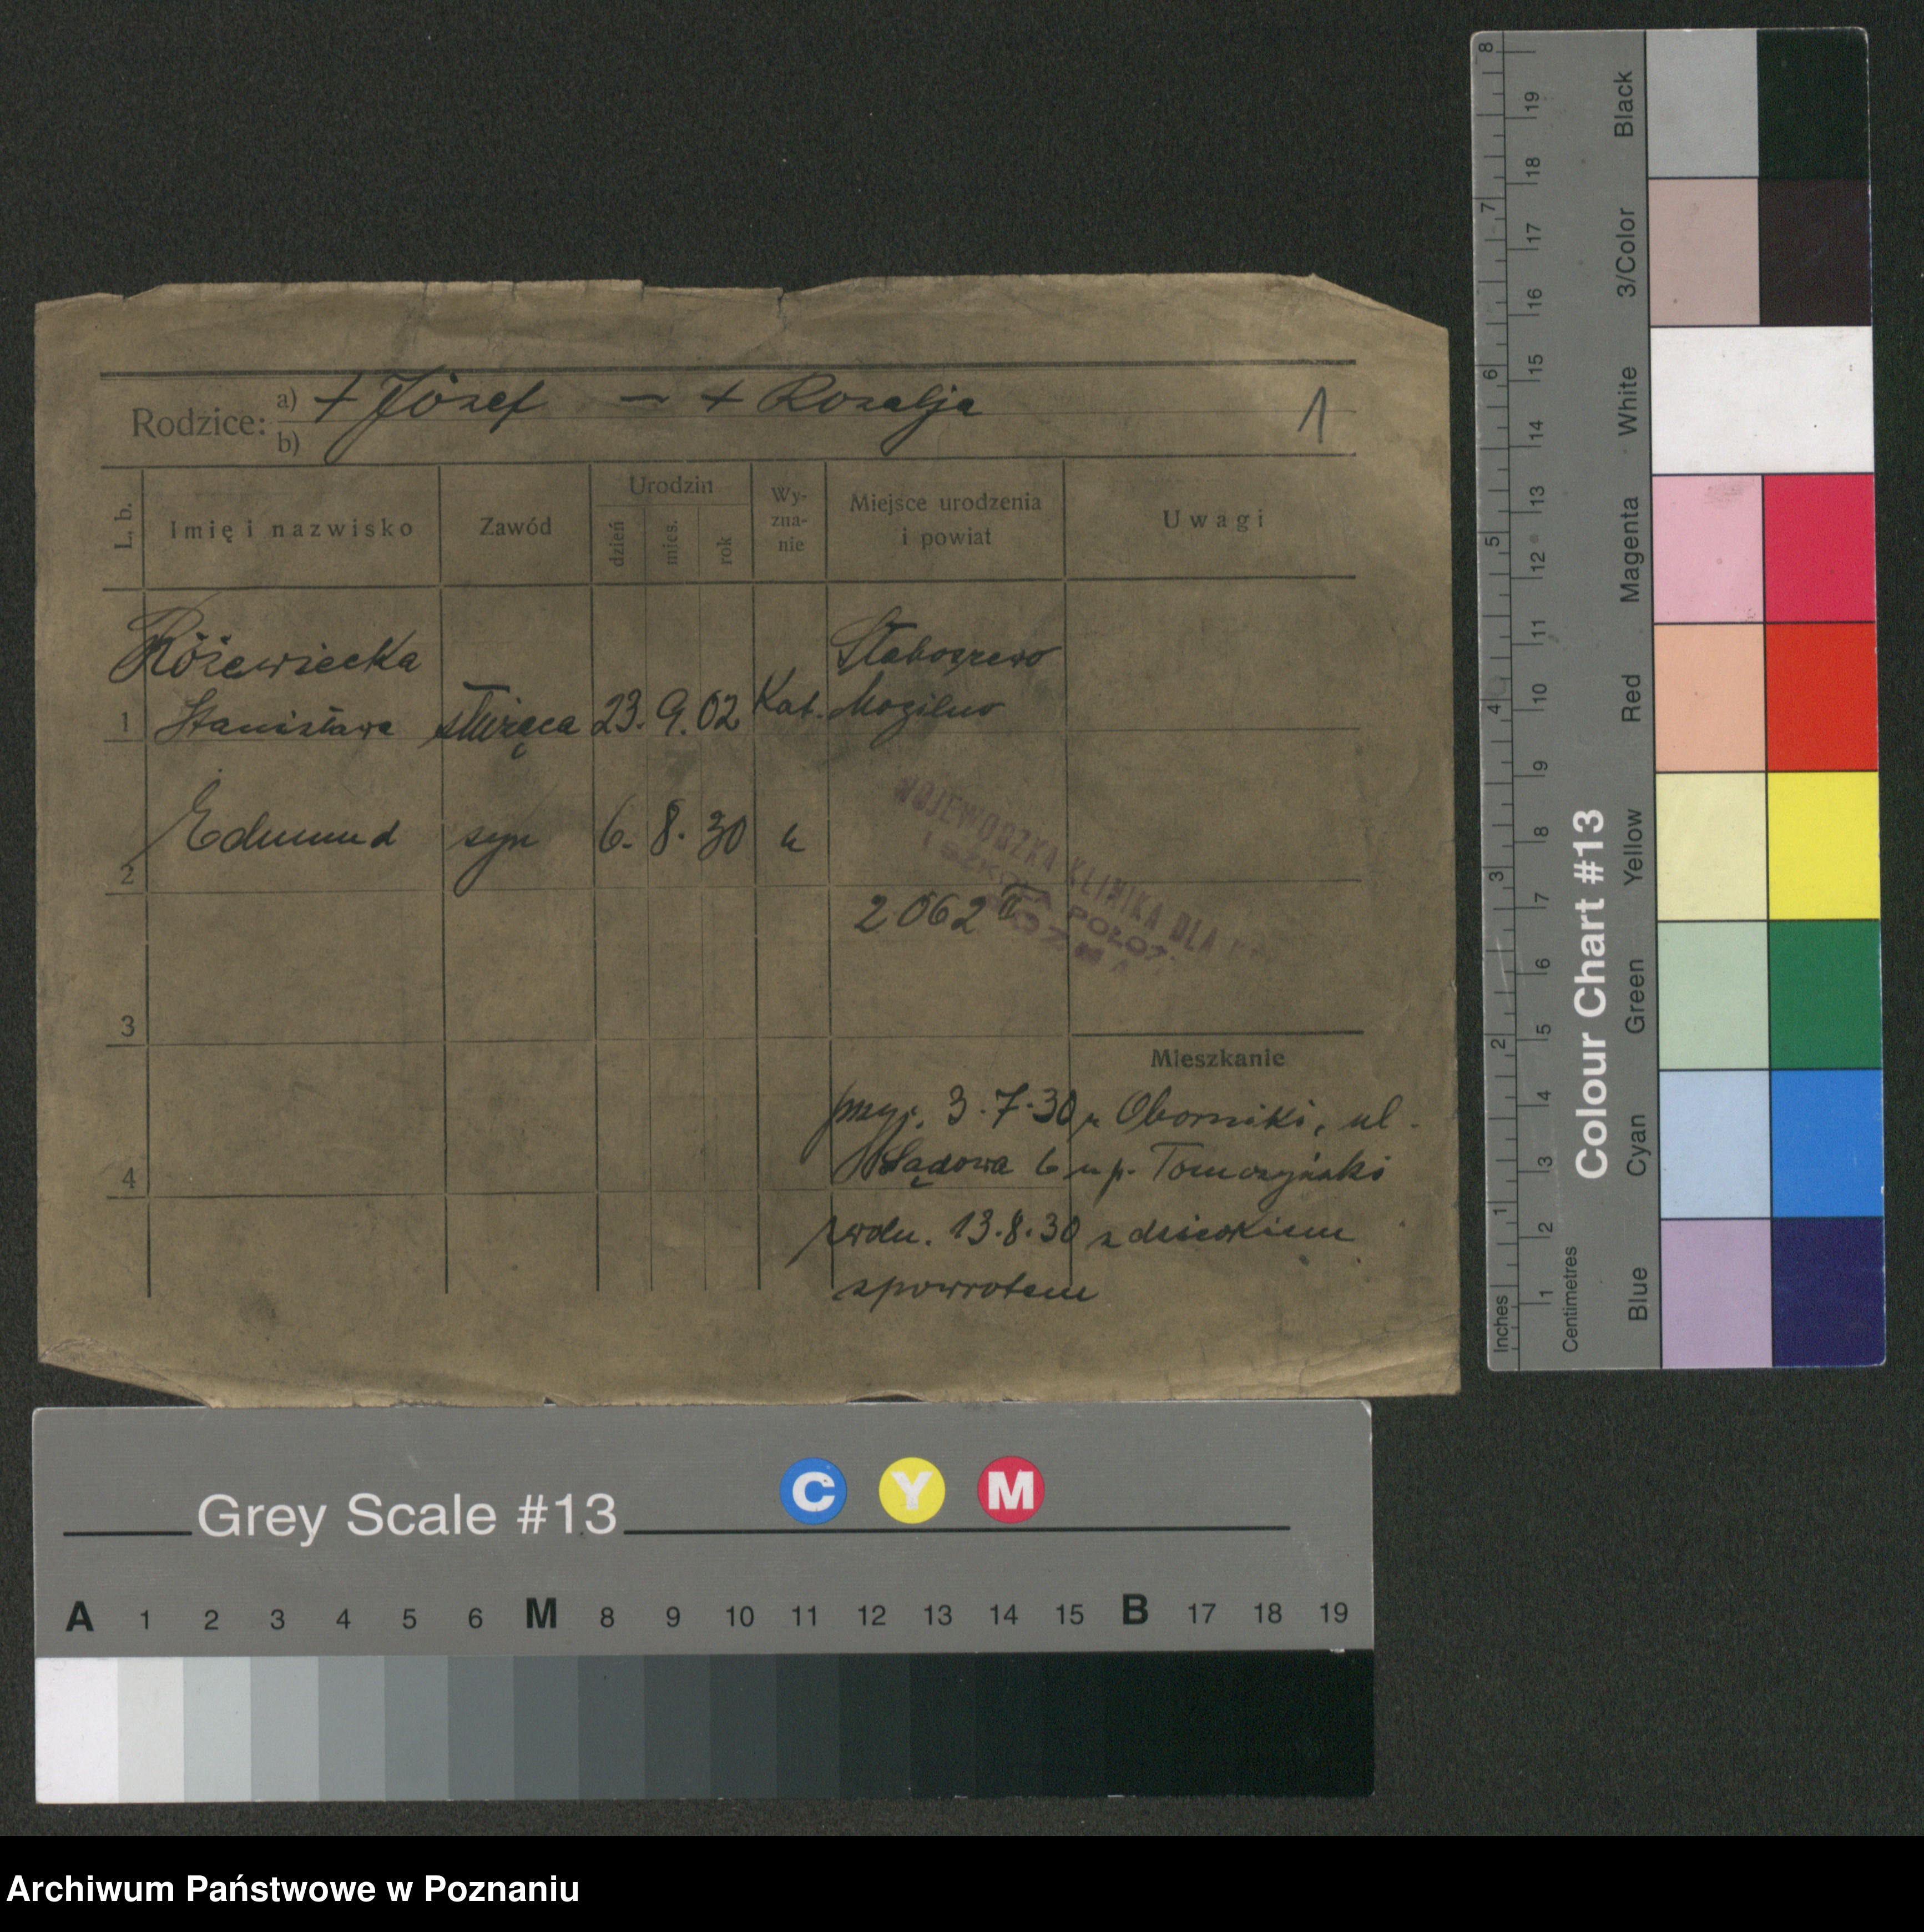 Rodzice: a) + Józef — + Rozalja 1
b)
L. b. Imię i nazwisko Zawód Urodzin dzień mies. rok Wy-zna-nie Miejsce urodzenia i powiat Uwagi
Różewiecka Staboszewo
1 Stanisława służąca 23. 9. 02 Kat. Mogilno
2 Edmund syn 6. 8. 30 "
WOJEWODZKA KLINIKA DLA
I SZKOŁA POŁOŻ.
2062
3
Mieszkanie
przyj. 3.7.30 z Oborniki, ul.
4 Sądowa 6 u p. Tomczyński
zwoln. 13.8.30 z dzieckiem
spowrotem
Inches 1 2 3 4 5 6 7 8
Centimetres 1 2 3 4 5 6 7 8 9 10 11 12 13 14 15 16 17 18 19
Colour Chart #13
Blue Cyan Green Yellow Red Magenta White 3/Color Black
Grey Scale #13 C Y M
A 1 2 3 4 5 6 M 8 9 10 11 12 13 14 15 B 17 18 19
Archiwum Państwowe w Poznaniu